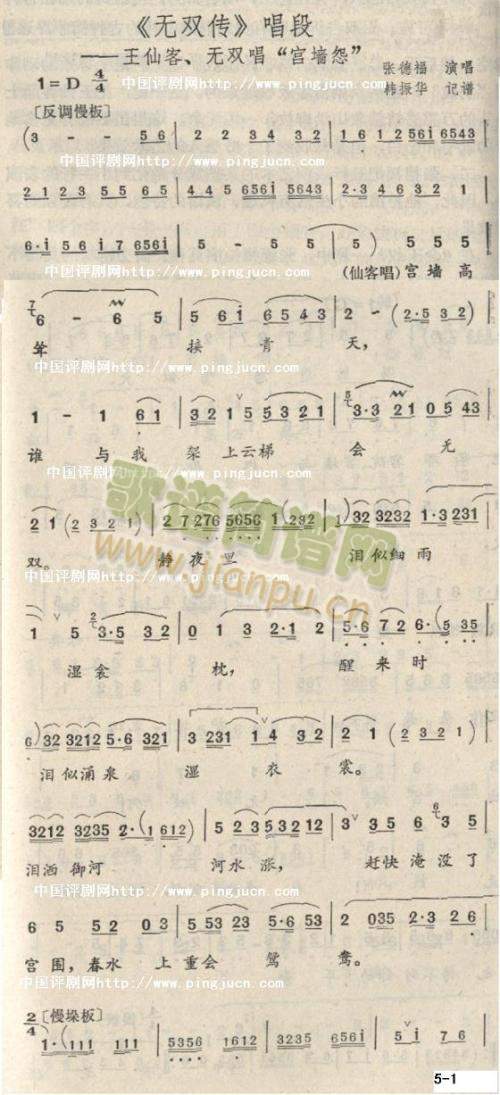 《无双传》唱段
——王仙客、无双唱“宫墙怨”
1=D 4/4
张德福 演唱
韩振华 记谱
中国评剧网http://www.pingjucn.com
[反调慢板]
(3 - - 5 6 | 2 2 3 4 3 2 | 1 6 1 2 5 6 i 6 5 4 3 |
中国评剧网http://www.pingjucn.com
2 1 2 3 5 5 6 5 | 4 4 5 6 5 6 i 5 6 4 3 | 2·3 4 6 3 2 1 |
6·i 5 6 i 7 6 5 6 i | 5 - 5 5 | 5) 5 5 5
中国评剧网http://www.pingjucn.com
(仙客唱)宫墙高
6 - 6 5 | 5 6 i 6 5 4 3 | 2 - (2·5 3 2) |
耸 接青天,
中国评剧网http://www.pingjucn.com
1 - 1 6 1 | 3 2 1 5 5 3 2 1 | 3·3 2 1 0 5 4 3 |
谁与我架上云梯会无
中国评剧网http://www.pingjucn.com
2 1 (2 3 2 1) | 2 7 2 7 6 5 6 5 6 (1 2 3 2 | 1) 3 2 3 2 3 2 1·3 2 3 1 |
双。静夜里 泪似细雨
中国评剧网http://www.pingjucn.com
歌谱简谱网
www.jianpu.cn
1 5 3·5 3 2 | 0 1 3 2·1 2 | 5·6 7 2 6·(5 3 5 |
湿衾枕, 醒来时
中国评剧网http://www.pingjucn.com
6) 3 2 3 2 1 2 5·6 3 2 1 | 3 2 3 1 1 4 3 2 | 2 1 (2 3 2 1) |
泪似涌泉 湿衣裳。
中国评剧网http://www.pingjucn.com
3 2 1 2 3 2 3 5 2·(1 6 1 2) | 5 2 3 5 3 2 3 2 1 | 3 3 5 6 3 5 |
泪洒御河 河水涨, 赶快淹没了
中国评剧网http://www.pingjucn.com
6 5 5 2 0 3 | 5 5 3 2 3 5·6 5 3 | 2 0 3 5 2·3 2 6 |
宫围,春水上重会鸳鸯。
中国评剧网http://www.pingjucn.com
2/4 [慢垛板]
1·(1 1 1 1 1 1 | 5 3 5 6 1 6 1 2 | 3 2 3 5 6 5 6 i | 5 i 7 6 |
5-1